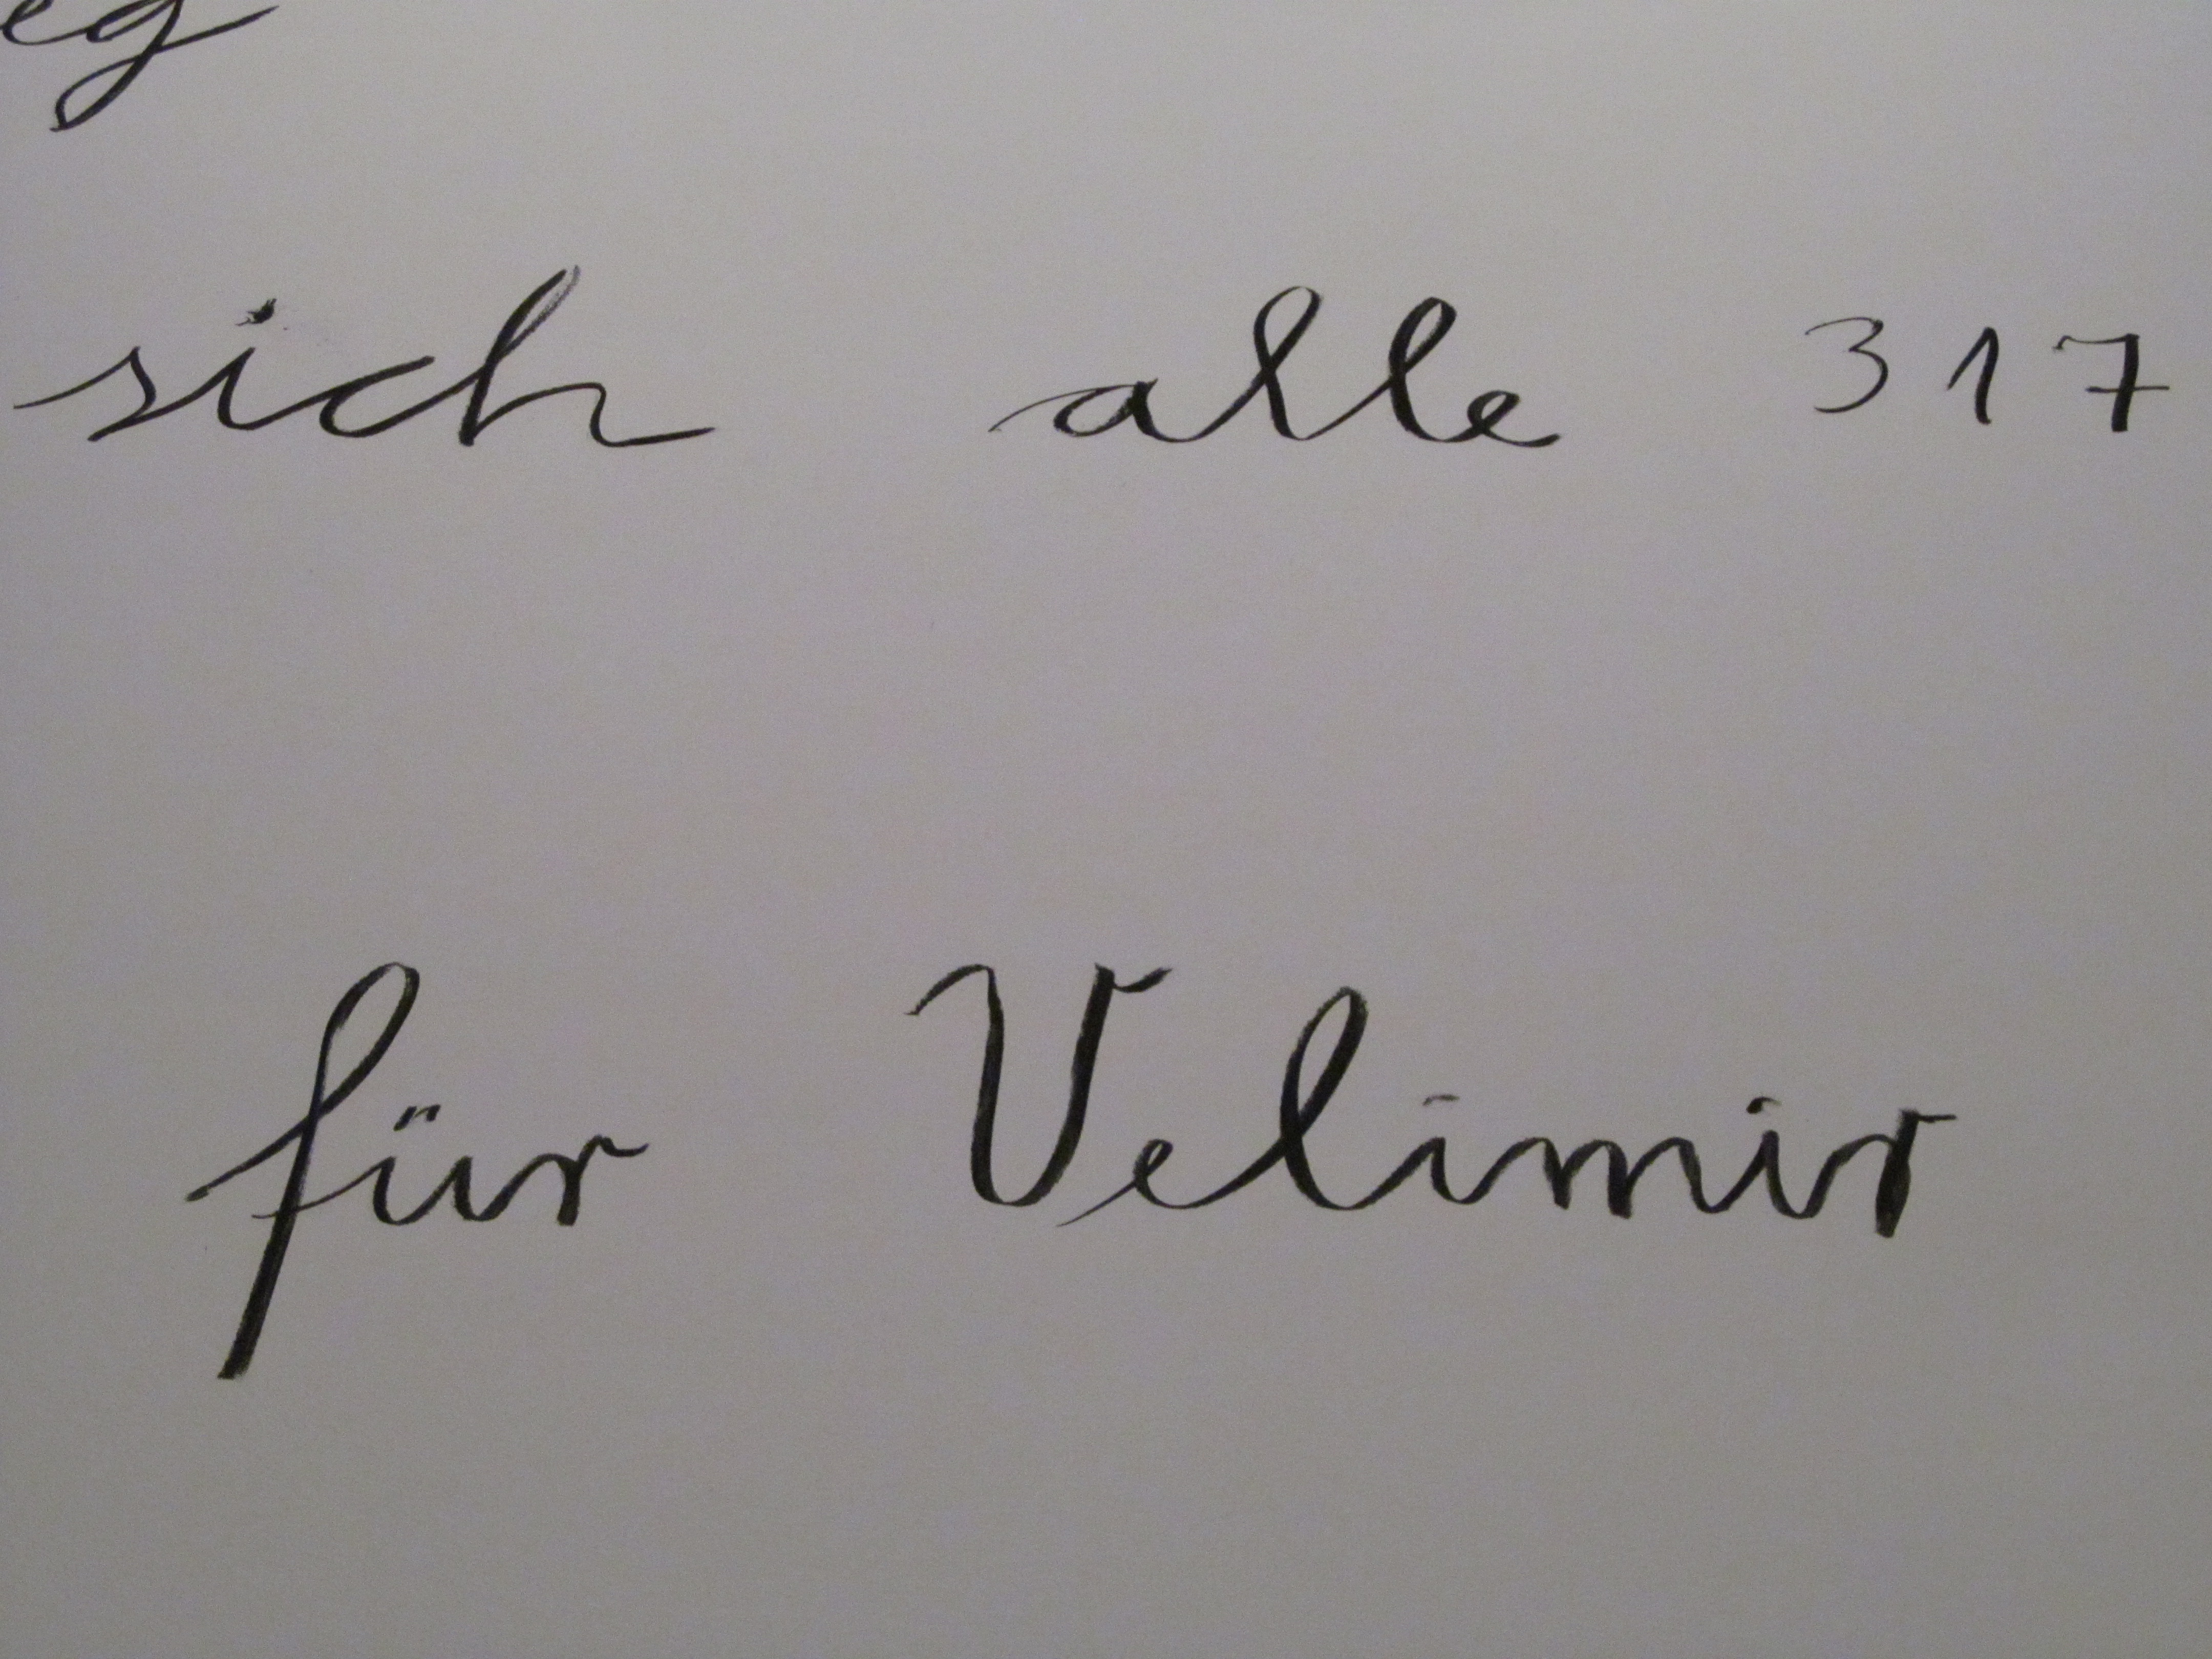 eg
sich alle 317
für Velimir